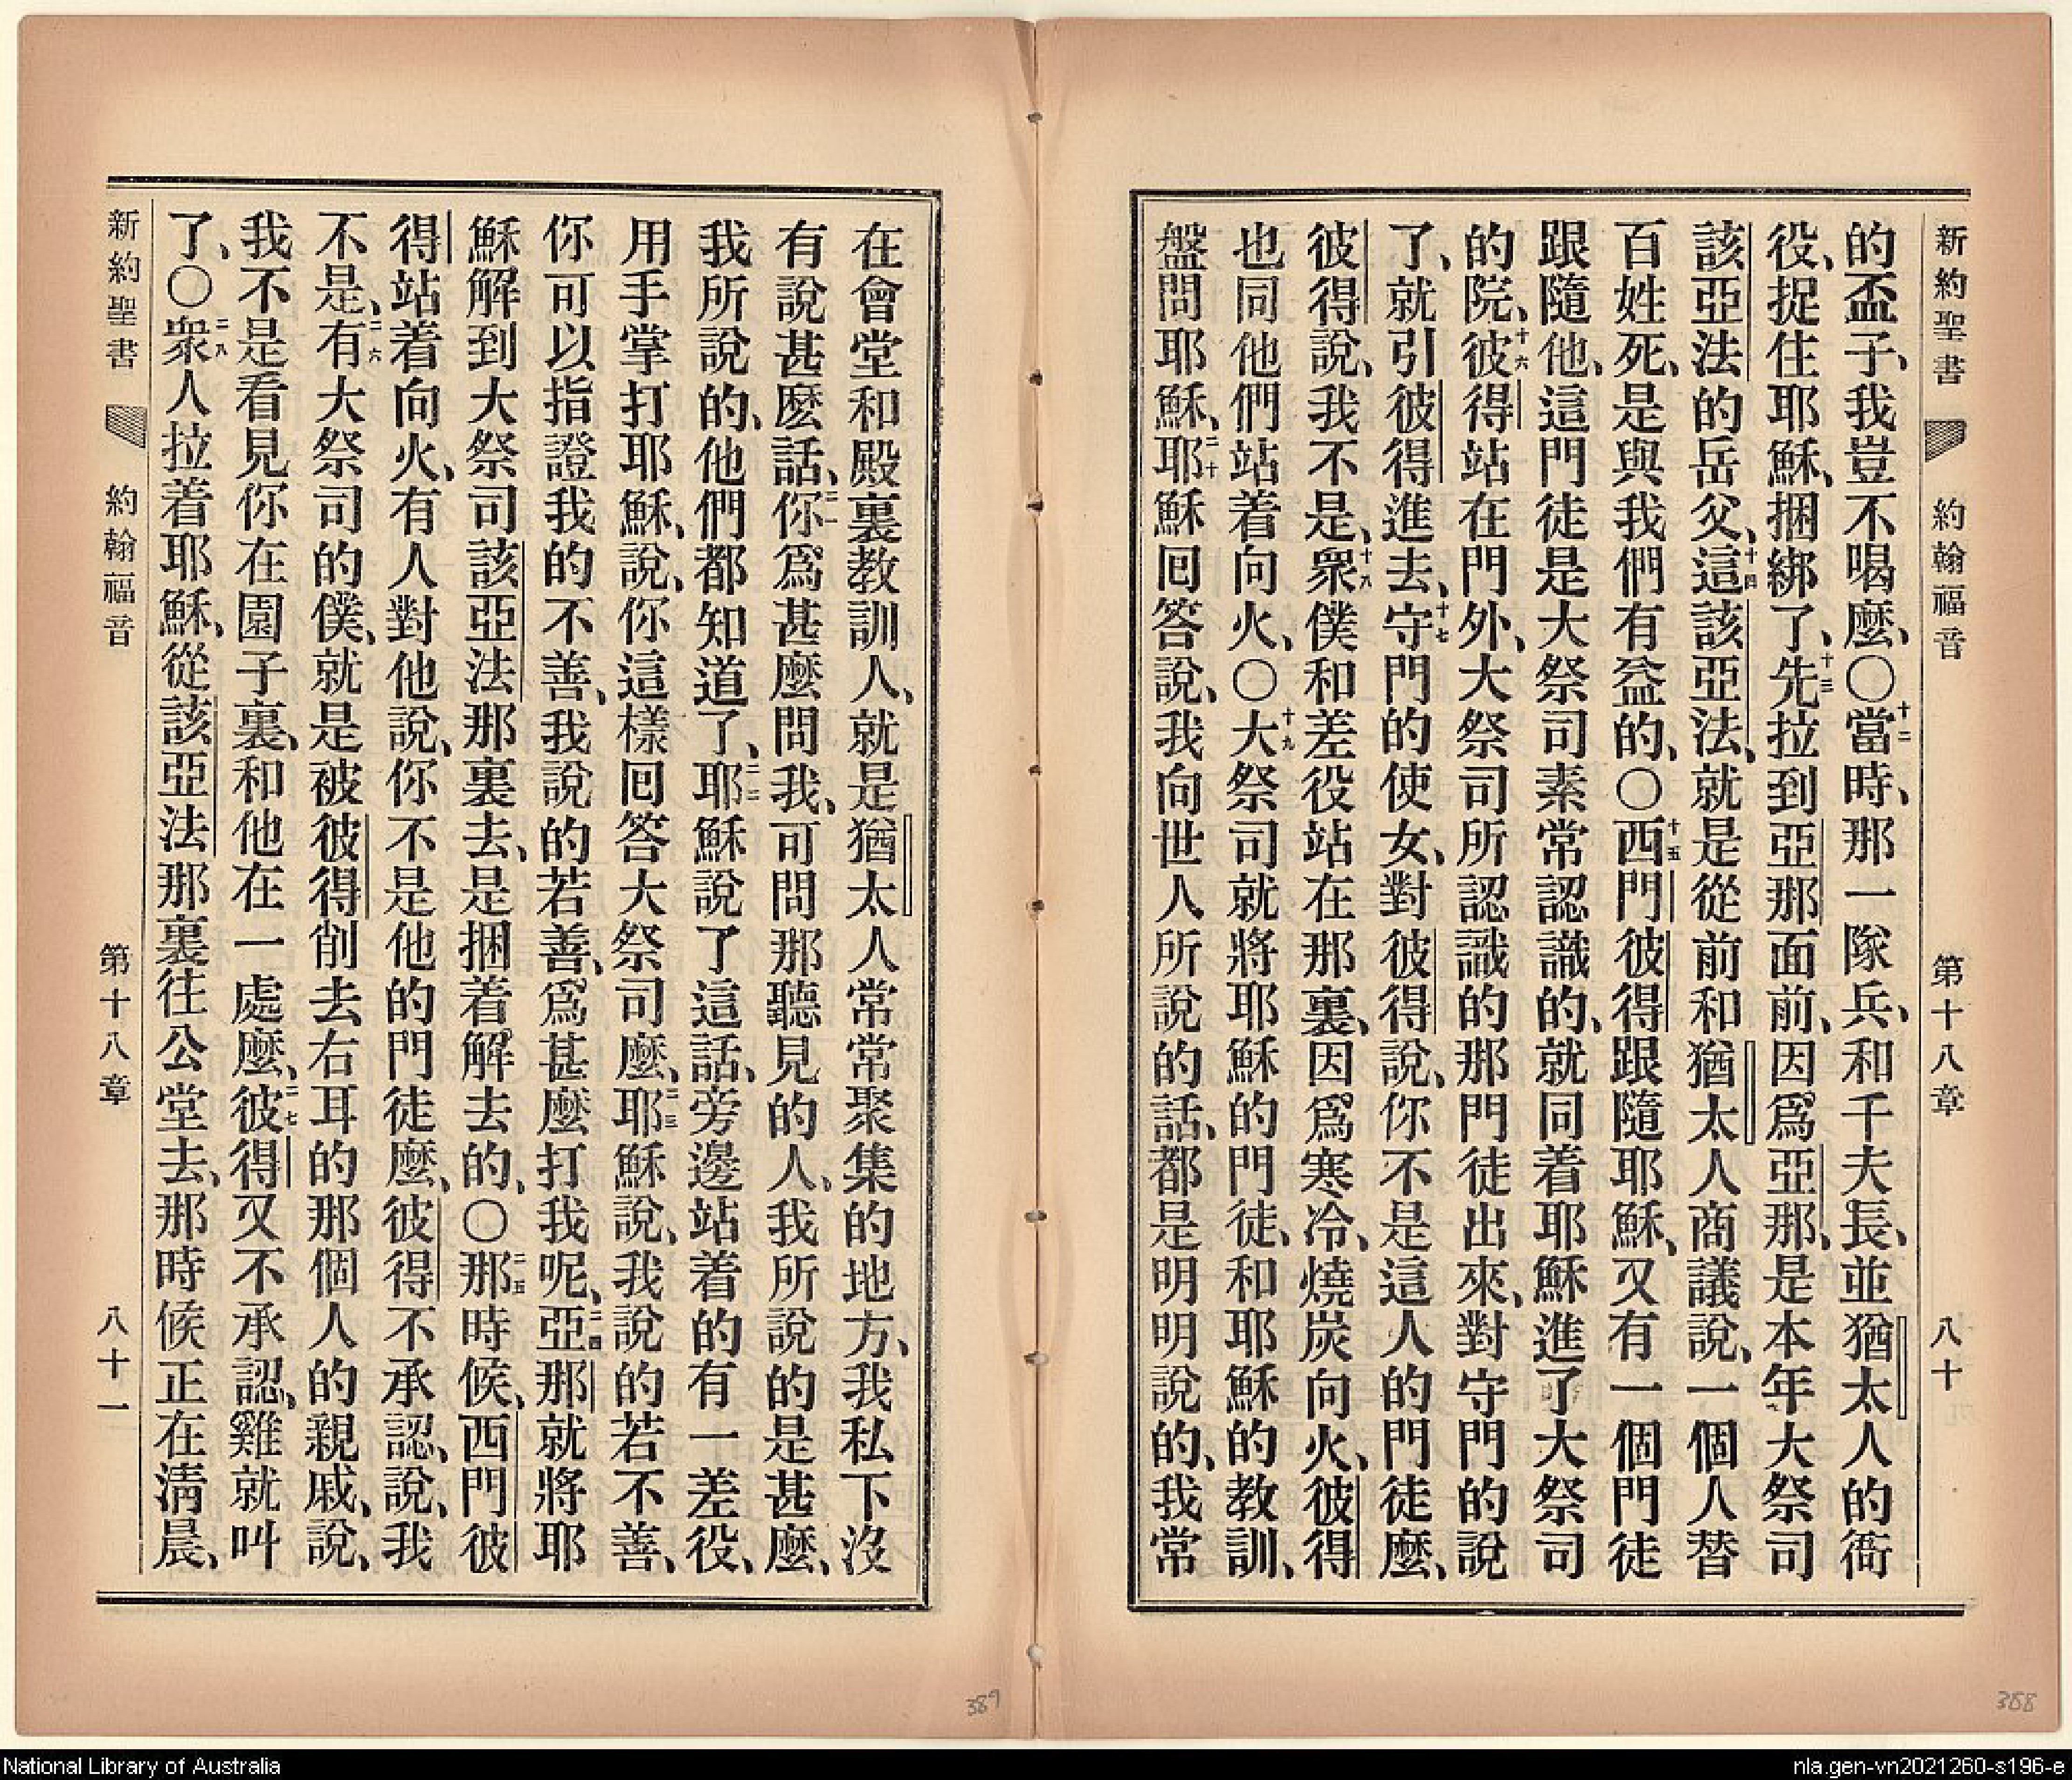 新約聖書 約翰福音 第十八章 八十
的盃子、我豈不喝麼、〇十二當時、那一隊兵、和千夫長、並猶太人的衙
役、捉住耶穌、捆綁了、十三先拉到亞那面前、因爲亞那、是本年大祭司
該亞法的岳父、十四這該亞法、就是從前和猶太人商議說、一個人替
百姓死、是與我們有益的、〇十五西門彼得跟隨耶穌、又有一個門徒
跟隨他、這門徒是大祭司素常認識的、就同着耶穌進了大祭司
的院、十六彼得站在門外、大祭司所認識的那門徒出來、對守門的說
了、就引彼得進去、十七守門的使女、對彼得說、你不是這人的門徒麼、
彼得說、我不是、十八衆僕和差役站在那裏、因爲寒冷、燒炭向火、彼得
也同他們站着向火、〇十九大祭司就將耶穌的門徒、和耶穌的教訓、
盤問耶穌、二十耶穌回答說、我向世人所說的話、都是明明說的、我常
在會堂和殿裏教訓人、就是猶太人常常聚集的地方、我私下沒
有說甚麼話、二一你爲甚麼問我、可問那聽見的人、我所說的是甚麼、
我所說的、他們都知道了、二二耶穌說了這話、旁邊站着的有一差役、
用手掌打耶穌、說、你這樣回答大祭司麼、二三耶穌說、我說的若不善、
你可以指證我的不善、我說的若善、爲甚麼打我呢、二四亞那就將耶
穌解到大祭司該亞法那裏去、是捆着解去的、〇二五那時候、西門彼
得站着向火、有人對他說、你不是他的門徒麼、彼得不承認、說、我
不是、二六有大祭司的僕、就是被彼得削去右耳的那個人的親戚、說、
我不是看見你在園子裏、和他在一處麼、二七彼得又不承認、雞就叫
了、〇二八衆人拉着耶穌、從該亞法那裏往公堂去、那時候正在淸晨、
新約聖書 約翰福音 第十八章 八十一
389
388
National Library of Australia
nla.gen-vn2021260-s196-e